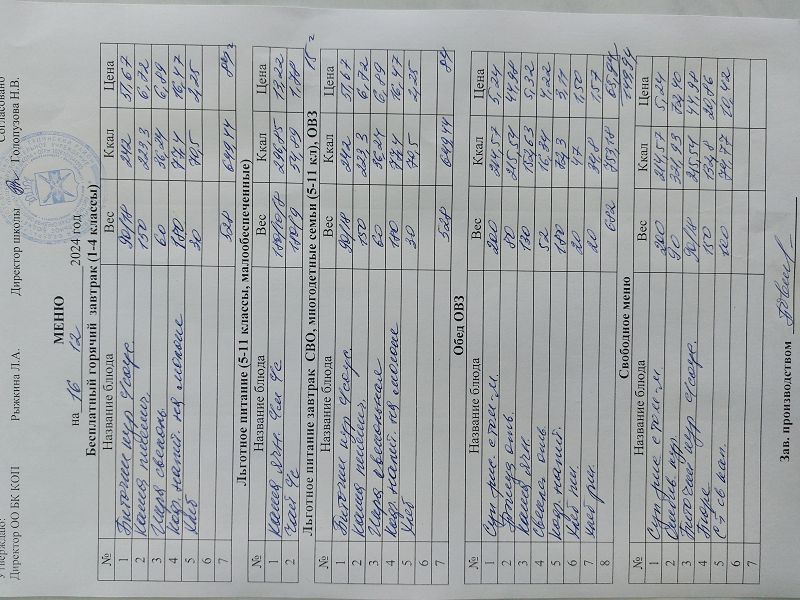 Утверждаю: Согласовано
Директор ОО БК КОП Рыжкина Л.А. Директор школы Голопузова Н.В.
МЕНЮ
на 16 12 2024 год
Бесплатный горячий завтрак (1-4 классы)
№ Название блюда Вес Ккал Цена
1 Биточки кур с/соус 90/18 242 51,67
2 Каша пшенич. 150 223,3 6,72
3 Икра свекольн. 60 36,24 6,89
4 Коф. напит. на молоке 180 77,4 16,47
5 Хлеб 30 70,5 2,25
6
7 528 649,44 84
Льготное питание (5-11 классы, малообеспеченные)
№ Название блюда Вес Ккал Цена
1 Каша ячн.
2 Чай 1,78
Льготное питание завтрак СВО, многодетные семьи (5-11 кл), ОВЗ
№ Название блюда Вес Ккал Цена
1 Биточки кур с/соус 90/18 242 51,67
2 Каша пшенич. 150 223,3 6,72
3 Икра свекольная 60 36,24 6,89
4 Коф. напит. на молоке 180 77,4 16,47
5 Хлеб 30 70,5 2,25
6
7 528 649,44 84
Обед ОВЗ
№ Название блюда Вес Ккал Цена
1 Суп рис с том-м 200 214,57 5,24
2 80 215,54 44,98
3 Каша ячн. 130 152,63 5,32
4 Свекла отв. 52 16,34 4,22
5 Коф. напит. 180 3,11
6 Хлеб пш. 20 47 1,50
7 хлеб рж. 20 34,8 1,57
8 682 753,18 65,94
149,94
Свободное меню
№ Название блюда Вес Ккал Цена
1 Суп рис с том-м 200 214,57 5,24
2 90
3 Биточки кур с/соус 90/18 215,54 44,98
4 Пюре 150 132,8
5 С-т св кап. 100 74,77
6
7
Зав. производством